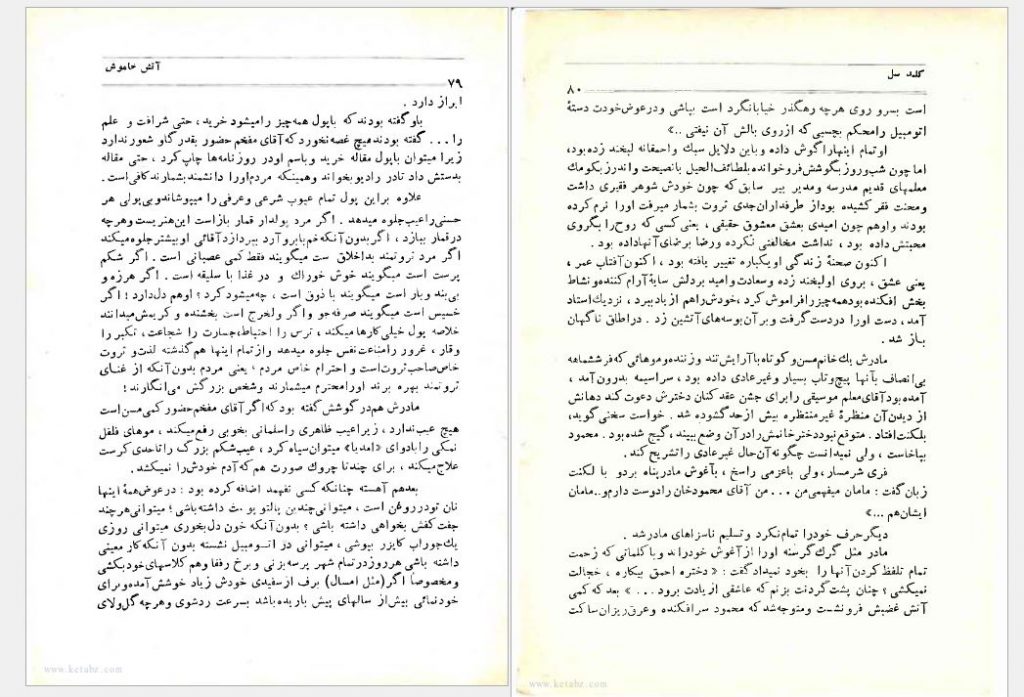 آتش خاموش
۷۹
ابراز دارد .
باو گفته بودند که باپول همه‌چیز را میشود خرید ، حتی شرافت و علم
را ... گفته بودند هیچ غصه نخورد که آقای مفخم حضور بقدر گاو شعور ندارد
زیرا میتوان باپول مقاله خرید و باسم او در روزنامه‌ها چاپ کرد ، حتی مقاله
بدستش داد تا در رادیو بخواند و همینکه مردم او را دانشمند بشمارند کافی است .
علاوه براین پول تمام عیوب شرعی و عرفی را میپوشاند و بی‌پولی هر
حسنی را عیب جلوه میدهد . اگر مرد پولدار قمار باز است این هنریست و هر چه
در قمار ببازد ، اگر بدون آنکه خم بابرو آرد بپردازد آقائی او بیشتر جلوه میکند
اگر مرد ثروتمند بداخلاق است میگویند فقط کمی عصبانی است . اگر شکم
پرست است میگویند خوش خوراك و در غذا با سلیقه است . اگر هرزه و
بی‌بند و بار است میگویند با ذوق است ، چه میشود کرد ؟ او هم دل دارد ؛ اگر
خسیس است میگویند صرفه‌جو و اگر ولخرج است بخشنده و کریمش میدانند
خلاصه پول خیلی کارها میکند ، ترس را احتیاط ، جسارت را شجاعت ، تکبر را
وقار ، غرور را مناعت نفس جلوه میدهد و از تمام اینها هم گذشته لذت و ثروت
خاص صاحب ثروت است و احترام خاص مردم ، یعنی مردم بدون آنکه از غنای
ثروتمند بهره برند او را محترم میشمارند و شخص بزرگش می‌انگارند ؛
مادرش هم در گوشش گفته بود که اگر آقای مفخم حضور کمی مسن است
هیچ عیب ندارد ، زیرا عیب ظاهری را سلمانی بخوبی رفع میکند ، موهای فلفل
نمکی را با دوای «امدیا» میتوان سیاه کرد ، عیب شکم بزرگ را تا حدی کرست
علاج میکند ، برای چند تا چروك صورت هم که آدم خودش را نمیکشد .
بعد هم آهسته چنانکه کسی نفهمد اضافه کرده بود : در عوض همۀ اینها
نان تو در روغن است ، میتوانی چندین پالتو پوست داشته باشی ؛ میتوانی هر چند
جفت کفش بخواهی داشته باشی ؟ بدون آنکه خون دل بخوری میتوانی روزی
یك جوراب کایزر بپوشی ، میتوانی در اتومبیل نشسته بدون آنکه کار معینی
داشته باشی هر روز در تمام شهر پرسه بزنی و برخ رفقا و هم کلاسهای خود بکشی
و مخصوصاً اگر (مثل امسال) برف از سفیدی خودش زیاد خوشش آمده و برای
خودنمائی بیش از سالهای پیش باریده باشد بسرعت رد شوی و هر چه گل ولای
www.ketabz.com
گلهٔ سل
۸۰
است بسر و روی هر چه رهگذر خیابانگرد است بپاشی و در عوض خودت دستهٔ
اتومبیل را محکم بچسبی که از روی بالش آن نیفتی ..»
او تمام اینها را گوش داده و باین دلایل سبك و احمقانه لبخند زده بود ،
اما چون شب و روز بگوشش فرو خوانده بلطائف‌الحیل با نصیحت و اندرز بکومك
معلمهای قدیم مدرسه و مدیر پیر سابق که چون خودش شوهر فقیری داشت
و محنت فقر کشیده بود از طرفداران جدی ثروت بشمار میرفت او را نرم کرده
بودند و او هم چون امیدی بعشق معشوق حقیقی ، یعنی کسی که روح را بگروی
محبتش داده بود ، نداشت مخالفتی نکرده و رضا برضای آنها داده بود .
اکنون صحنهٔ زندگی او یکباره تغییر یافته بود ، اکنون آفتاب عمر ،
یعنی عشق ، بروی او لبخند زده و سعادت و امید بر دلش سایهٔ آرام کننده و نشاط
بخش افکنده بود همه چیز را فراموش کرد ، خودش را هم از یاد ببرد ، نزدیك استاد
آمد ، دست او را در دست گرفت و بر آن بوسه‌های آتشین زد . در اطاق ناگهان
باز شد .
مادرش یك خانم مسن و کوتاه با آرایش تند و زننده و موهائی که فرششماهه
بی‌انصاف بآنها پیچ و تاب بسیار و غیر عادی داده بود ، سراسیمه بدرون آمد ،
آمده بود آقای معلم موسیقی را برای جشن عقد کنان دخترش دعوت کند دهانش
از دیدن آن منظرهٔ غیر منتظره بیش از حد گشوده شد . خواست سخنی گوید ،
بلکنت افتاد . متوقع نبود دختر خانمش را در آن وضع ببیند ، گیج شده بود . محمود
بپاخاست ، ولی نمیدانست چگونه آن حال غیر عادی را تشریح کند .
فری شرمسار ، ولی با عزمی راسخ ، بآغوش مادر پناه برد و با لکنت
زبان گفت : مامان میفهمی من ... من آقای محمود خان را دوست دارم و .. مامان
ایشان هم ...»
دیگر حرف خود را تمام نکرد و تسلیم ناسزاهای مادر شد .
مادر مثل گرگ گرسنه او را از آغوش خود راند و با کلماتی که زحمت
تمام تلفظ کردن آنها را بخود نمیداد گفت : « دختره احمق بیکاره ، خجالت
نمیکشی ؟ چنان پشت گردنت بزنم که عاشقی از یادت برود ... » بعد که کمی
آتش غضبش فرو نشست و متوجه شد که محمود سر افکنده و عرق ریزان ساکت
www.ketabz.com